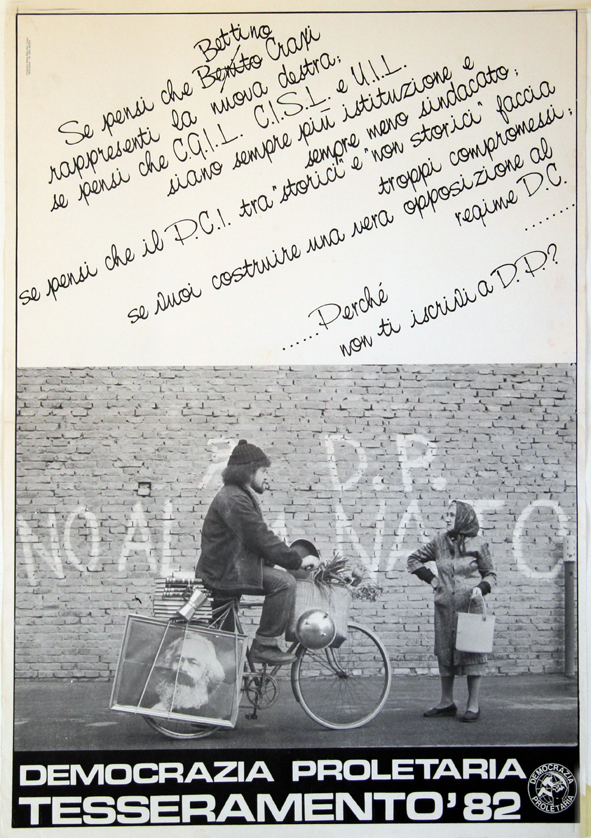 Bettino
Se pensi che Benito Craxi
rappresenti la nuova destra;
se pensi che C.G.I.L. C.I.S.L e U.I.L.
siano sempre più istituzione e
sempre meno sindacato;
se pensi che il P.C.I. tra "storici" e "non storici" faccia
troppi compromessi;
se vuoi costruire una vera opposizione al
regime D.C.
.........
......Perché
non ti iscrivi a D.P.?
D.P.
NO AL A NATO
DEMOCRAZIA PROLETARIA
TESSERAMENTO '82
DEMOCRAZIA
PROLETARIA